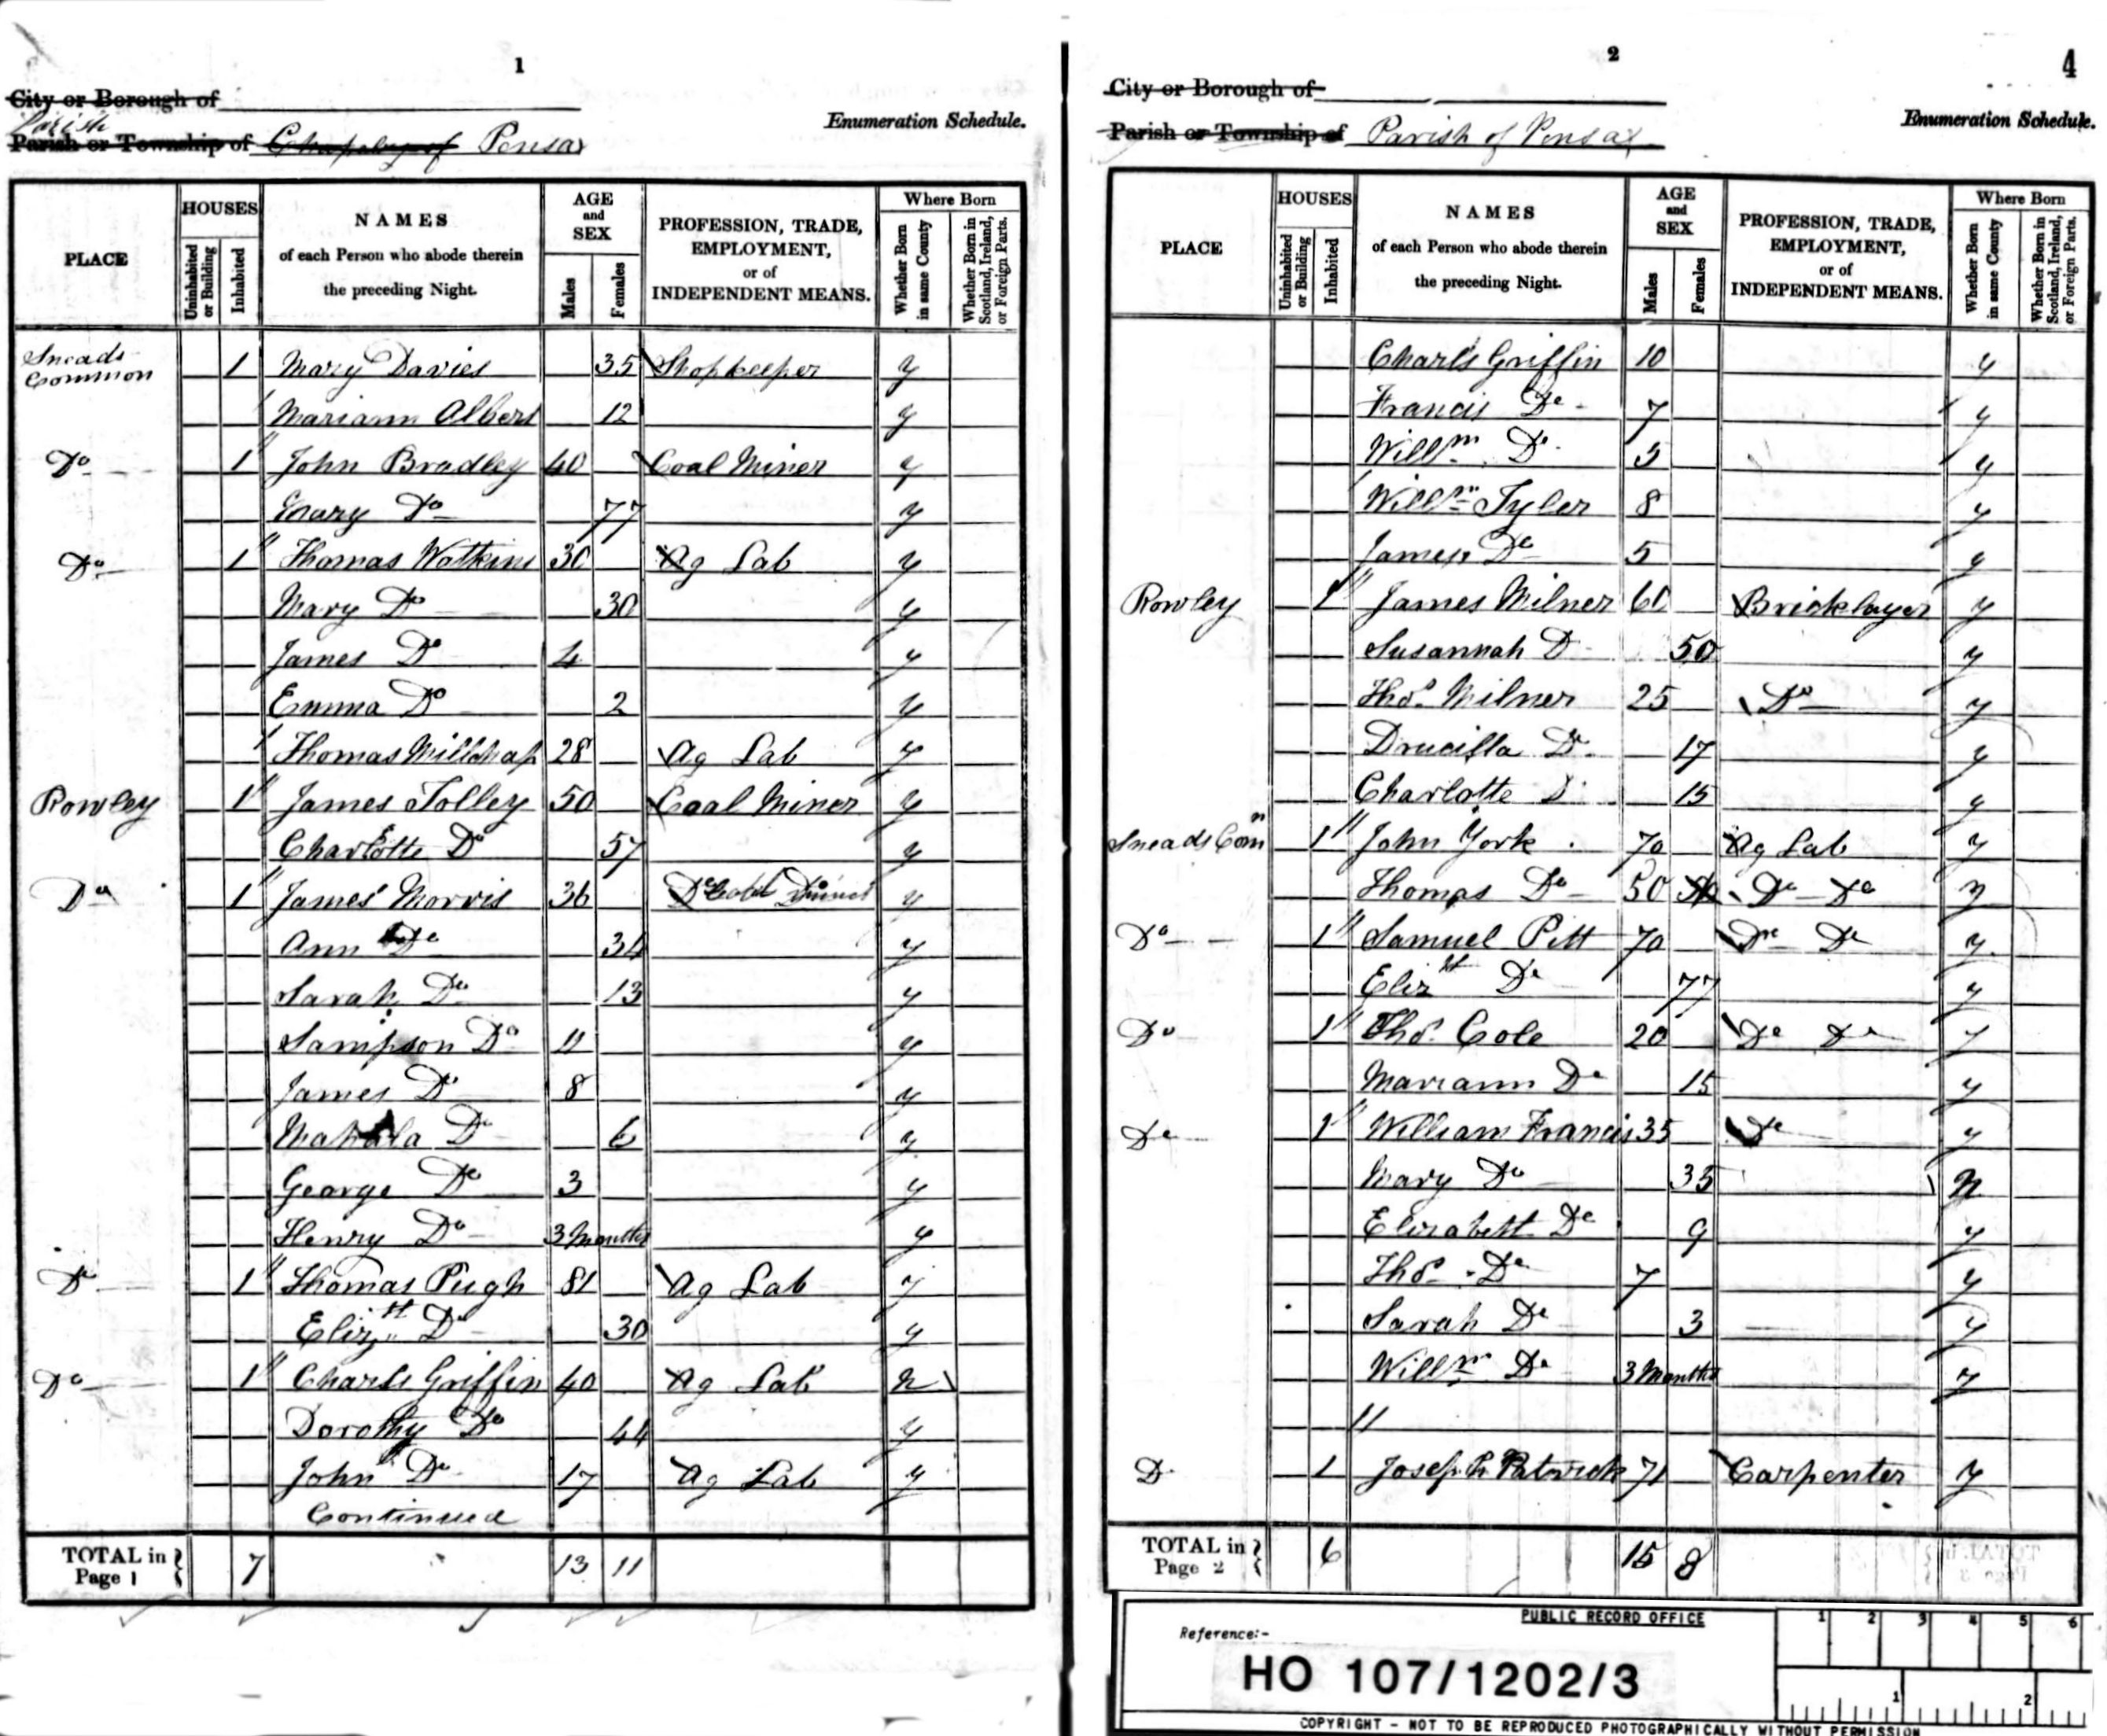 1
City or Borough of
Parish
Parish or Township of Chapelry of Pensax
Enumeration Schedule.
PLACE
HOUSES
Uninhabited or Building
Inhabited
NAMES
of each Person who abode therein
the preceding Night.
AGE
and
SEX
Males
Females
PROFESSION, TRADE,
EMPLOYMENT,
or of
INDEPENDENT MEANS.
Where Born
Whether Born in same County
Whether Born in Scotland, Ireland, or Foreign Parts.
Sneads Common 1 Mary Davies 35 Shopkeeper y
Mariann Albert 12 y
Do 1 John Bradley 40 Coal Miner y
Mary Do 77 y
Do 1 Thomas Watkins 30 Ag Lab y
Mary Do 30 y
James Do 4 y
Emma Do 2 y
Thomas Millchap 28 Ag Lab y
Rowley 1 James Tolley 50 Coal Miner y
Charlotte Do 57 y
Do 1 James Morris 36 Do y
Ann Do 34 y
Sarah Do 13 y
Sampson Do 11 y
James Do 8 y
Mahala Do 6 y
George Do 3 y
Henry Do 3 Months y
Do 1 Thomas Pugh 81 Ag Lab y
Elizth Do 30 y
Do 1 Charls Griffin 40 Ag Lab n
Dorothy Do 44 y
John Do 17 Ag Lab y
Continued
TOTAL in Page 1 7 13 11
2
4
City or Borough of
Parish or Township of Parish of Pensax
Enumeration Schedule.
PLACE
HOUSES
Uninhabited or Building
Inhabited
NAMES
of each Person who abode therein
the preceding Night.
AGE
and
SEX
Males
Females
PROFESSION, TRADE,
EMPLOYMENT,
or of
INDEPENDENT MEANS.
Where Born
Whether Born in same County
Whether Born in Scotland, Ireland, or Foreign Parts.
Charls Griffin 10 y
Francis Do 7 y
Willm Do 5 y
Willm Tyler 8 y
James Do 5 y
Rowley 1 James Milner 60 Bricklayer y
Susannah D 50 y
Thos Milner 25 Do y
Drucilla Do 17 y
Charlotte D 15 y
Sneads Comn 1 John York 70 Ag Lab y
Thomas Do 50 Do Do y
Do 1 Samuel Pitt 70 Do Do y
Elizth Do 77 y
Do 1 Thos Cole 20 Do Do y
Mariann Do 15 y
Do 1 William Francis 35 Do y
Mary Do 35 n
Elizabett Do 9 y
Thos Do 7 y
Sarah Do 3 y
Willm Do 3 Months y
D 1 Joseph Patrick 71 Carpenter y
TOTAL in Page 2 6 15 8
PUBLIC RECORD OFFICE
1 2 3 4 5 6
Reference:-
HO 107/1202/3
1 2
COPYRIGHT - NOT TO BE REPRODUCED PHOTOGRAPHICALLY WITHOUT PERMISSION